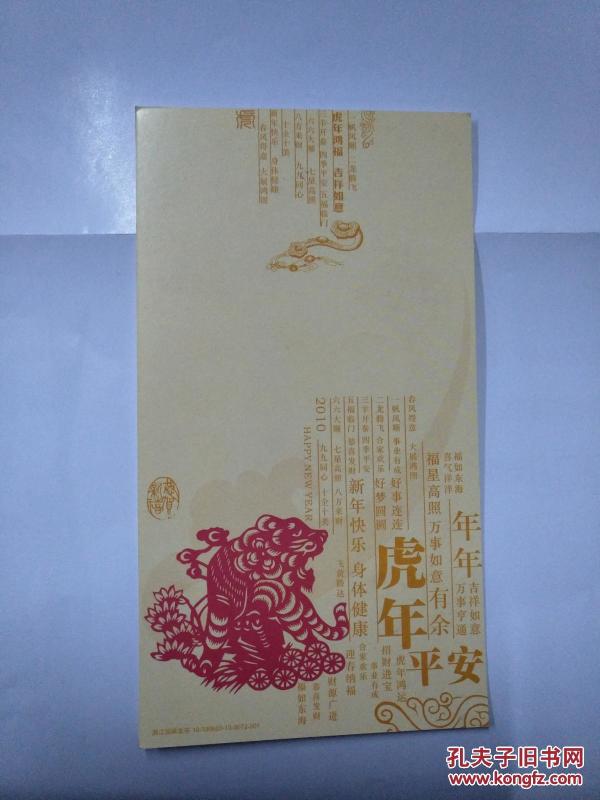 一帆风顺 二龙腾飞
虎年鸿福 吉祥如意
三羊开泰 四季平安 五福临门
六六大顺 七星高照
八方来财 九九同心
十全十美
新年快乐 身体健康
春风得意 大展鸿图
福如东海
喜气洋洋
年年
吉祥如意
万事亨通
福星高照 万事如意 有余
平安
春风得意 大展鸿图
一帆风顺 事业有成 好事连连
二龙腾飞 合家欢乐 好梦圆圆
虎年
虎年鸿运
招财进宝
三羊开泰 四季平安
五福临门 恭喜发财
新年快乐 身体健康
事业有成
合家欢乐
迎春纳福
六六大顺 七星高照 八方来财
飞黄腾达
2010 九九同心 十全十美
HAPPY NEW YEAR
财源广进
恭喜发财
福如东海
恭贺新禧
孔夫子旧书网
www.kongfz.com